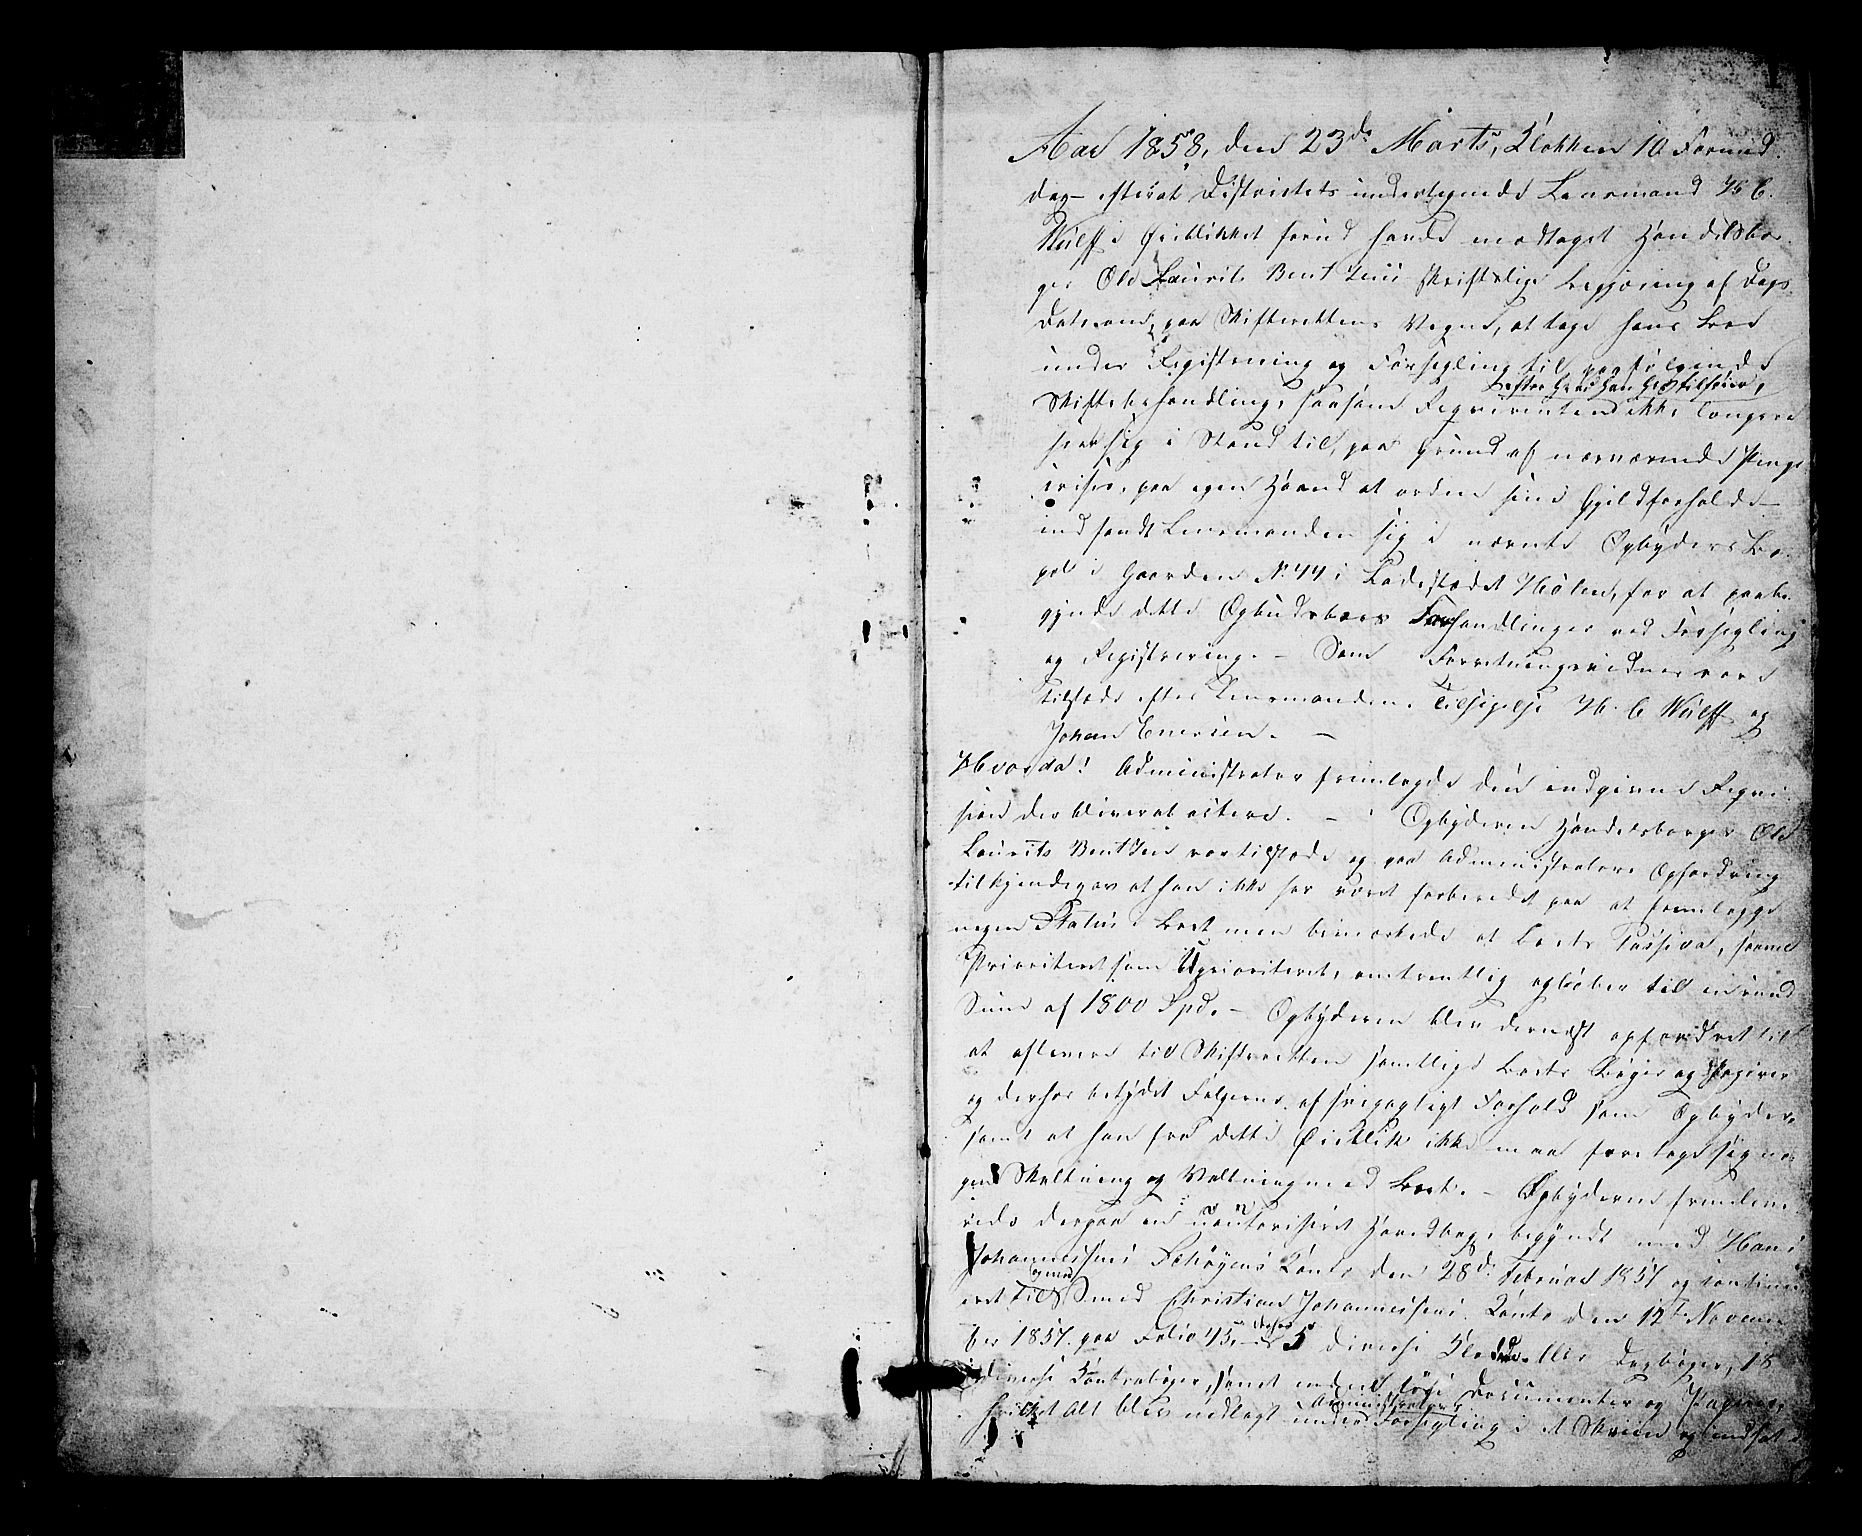 Aar 1858, den 23de Marts, Klokken 10 Formid
dag – efterat Districtets undertegnede Lensmand H. C.
Wulff i Øieblikket forud havde modtaget Handelsbor-
ger Ole Laurits Bentzens skriftlige Begjæring af Dags
Dato om, paa Skifterettens Vegne, at tage hans Bo
under Registrering og Forsegling til paafølgende
efter hvad han har tilføiet,
Skiftebehandling, saasom Reqvirenten ikke længere
seer sig i Stand til, paa Grund af nærværende Penge
crise, paa egen Haand at ordne sine Gjeldforholde –
indfandt Lensmanden sig i nævnte Opbyders Bo-
pæl i Gaarden No 44 i Ladestedet Hølen, for at paabe-
gynde dette Opbudsboes Forhandlinger ved Forsegling
og Registrering. – Som Forretningsvidner vare
tilstede efter Lensmandens Tilsigelse H. C. Wulff og
Johan Enersen. –
Hvorda! Administrator fremlagde den indgivne Reqvi-
sition der bliver at acttere. – Opbyderen Handelsborger Ole
Laurits Bentzen var tilstede og paa Administrators Opfordring
tilkjendegav at han ikke har været forberedet paa at fremlægge
nogen Status i Boet men bemærkede at Boets Passiva, saavel
Prioriteret som Uprioriteret, omtrentlig opløber til en rund
Sum af 1800 Spd. – Opbyderen blev dernæst opfordret til
at aflevere til Skifteretten samtlige Boets Bøger og Papirer
og derhos betydet Følgerne af svigagtigt Forhold som Opbyder,
samt at han fra dette Øieblik ikke maa foretage sig no-
gen Skaltning og Valtning med Boet. – Opbyderen fremleve-
rede derpaa en uautoriseret Hovedbog, begyndt med Hans
Johannessens Schøyens Konto den 28de Februar 1857 og continu-
eret til og med Smed Christian Johannessens Konto den 12te Novem-
ber 1857 paa Folio 45, derhos 5 diverse Kladde eller Dagbøger, 18
diverse Contrabøger, samt endeel løse Documenter og Papirer,
Administrators
hvilket Alt blev nedlagt under Forsegling i et Skriin og indsat i